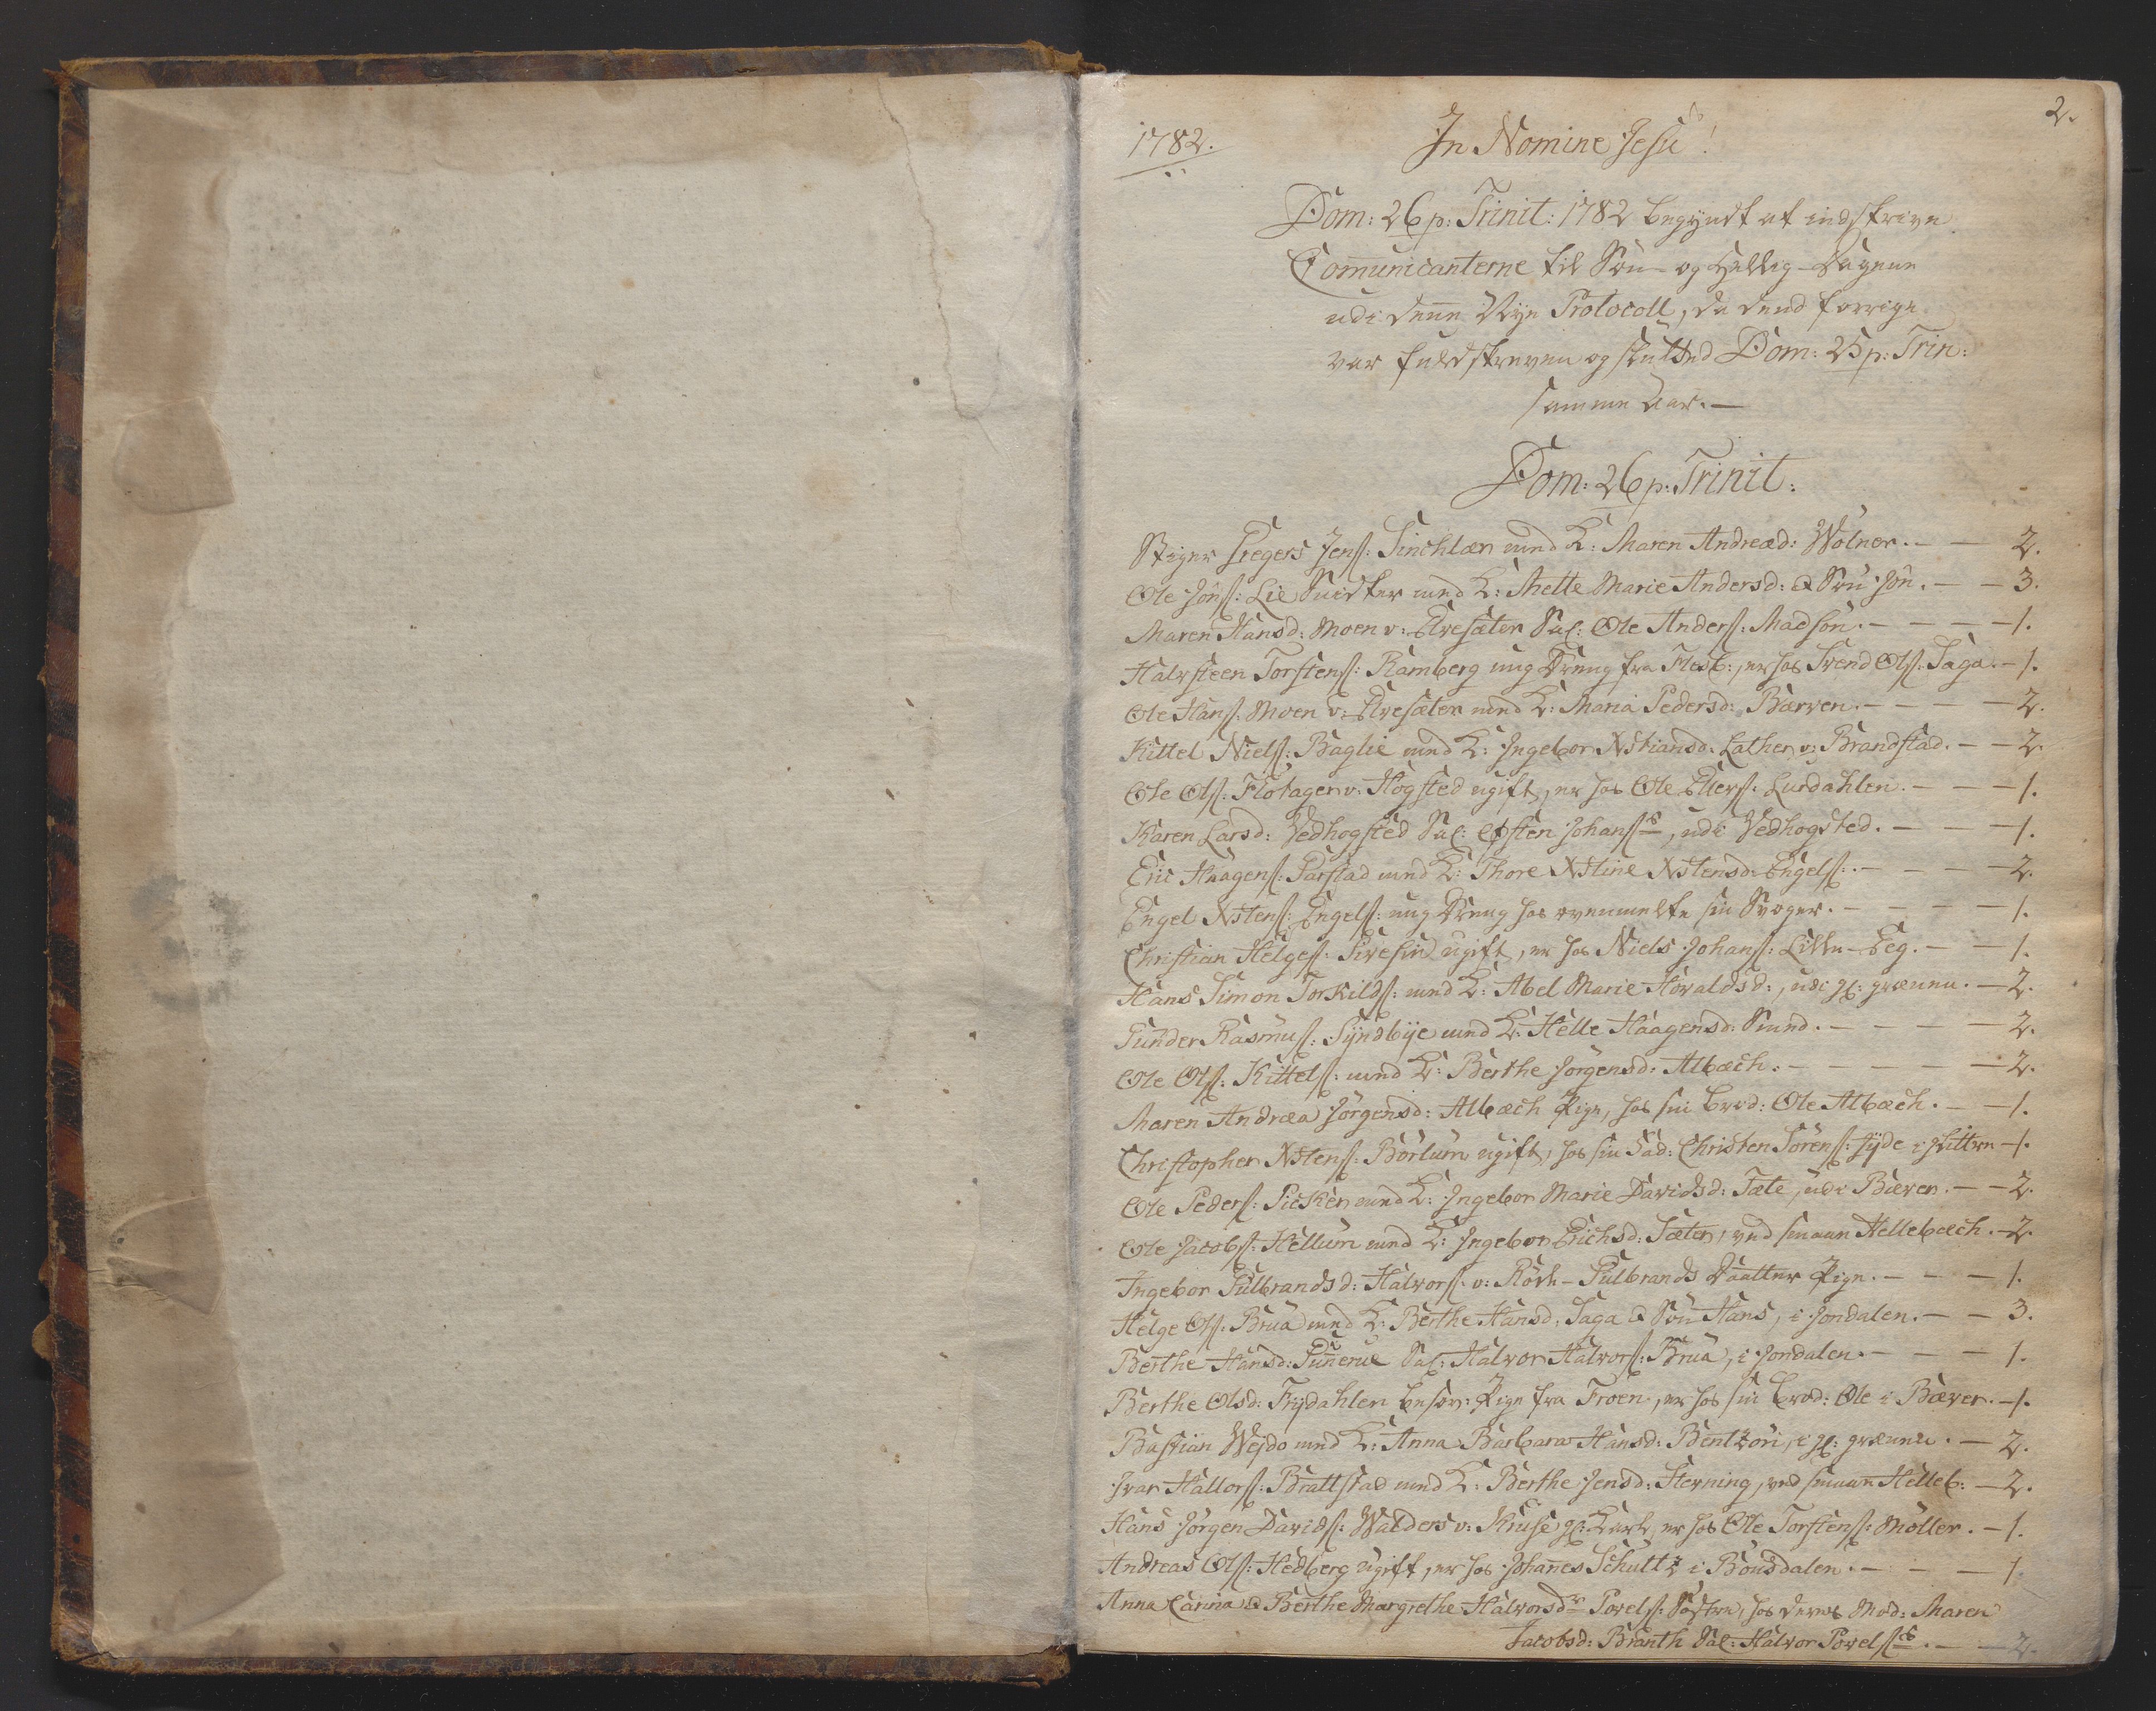 2.
1782. In Nomine Jesu!
Dom: 26 p: Trinit: 1782 begyndt at indskrive
Com̅unicanterne til Søn- og Hellig-Dagene
udi denne Nye Protocoll, da dend forrige
var fuldskreven og slutted Dom: 25 p: Trin:
samme Aar. —
Dom: 26 p: Trinit:
Stiger Gregers Jens: Sinchlær med K: Maren Andreæd: Wølner. — — 2.
Ole Jöns: Lie Snidker med K: Mette Marie Andersd: & Søn Jön. — — 3.
Maren Hansd: Moen v: Elvesæter Sal: Ole Anders: Madsön. — — — 1.
Halvsteen Torstens: Ramberg ung Dreng fra Flesb:, er hos Svend Ols: Saga. — 1.
Ole Hans: Moen v: Elvesæter med K: Maria Pedersd: Bærven. — — — 2.
Kittel Niels: Baglie med K: Ingebor Xstiansd: Lather v: Brandstad. — — 2.
Ole Ols: Flotager v: Hogsted ugift, er hos Ole Ellers: Lurdahlen. — — — 1.
Karen Larsd: Vedhogsted Sal: Østen Johans:, udi Vedhogsted. — — — 1.
Eric Haagens: Parstad med K: Thore Xstine Xstensd: Engels: — — — 2.
Engel Xstens: Engels: ung Dreng hos ovenmelte sin Svoger. — — — — 1.
Christian Helges: ugift, er hos Niels Johans: Lille-Eeg. — — 1.
Hans Simon Torkilds: med K: Abel Marie Hovaldsd:, udi gl: grænnen. — 2.
Gunder Rasmus: Syndbye med K: Helle Haagensd: Smed. — — — — 2.
Ole Ols: Kittels: med K: Berthe Jörgensd: Albæch. — — — — — 2.
Maren Andræa Jörgensd: Albæch Pige, hos sin brod: Ole Albæch. — — 1.
Christopher Xstens: Börlum ugift, hos sin Fad: Christen Sörens: Jyde i — 1.
Ole Peders: Picker med K: Ingebor Marie Davidsd: Tæte, udi Bæver. — — 2.
Ole Jacobs: Hellum med K: Ingebor Erichsd: Sæter, ved smaan Hellebæch. — 2.
Ingebor Gulbrandsd: Halvors: v: Röd- Gulbrands Daatter Pige. — — — 1.
Helge Ols: Brua med K: Berthe Hansd: Saga & Søn Hans, i Jondalen. — — 3.
Berthe Hansd: Gunerue Sal: Halvor Halvors: Brua, i Jondalen. — — — 1.
Berthe Olsd: Frydahlen besov: Pige fra Froen, er hos sin brod: Ole i Bæver. — 1.
Bastian Weido med K: Anna Barbara Hansd: Bentzön, i gl: grænnen. — 2.
Ivar Hallors: Brattstad med K: Berthe Jensd: Sterning, ved smaan Helleb: — 2.
Hans Jörgen Davids: Walders v: Kruse gl: Karl, er hos Ole Torstens: Möller. — 1.
Andreas Ols: Hedberg ugift, er hos Johannes Schultz i Bonsdalen. — — — 1.
Anna Carina & Berthe Margrethe Halvorsd: Povels: Söstre, hos deres Mod: Maren
Jacobsd: Branth Sal: Halvor Povels: — — 2.